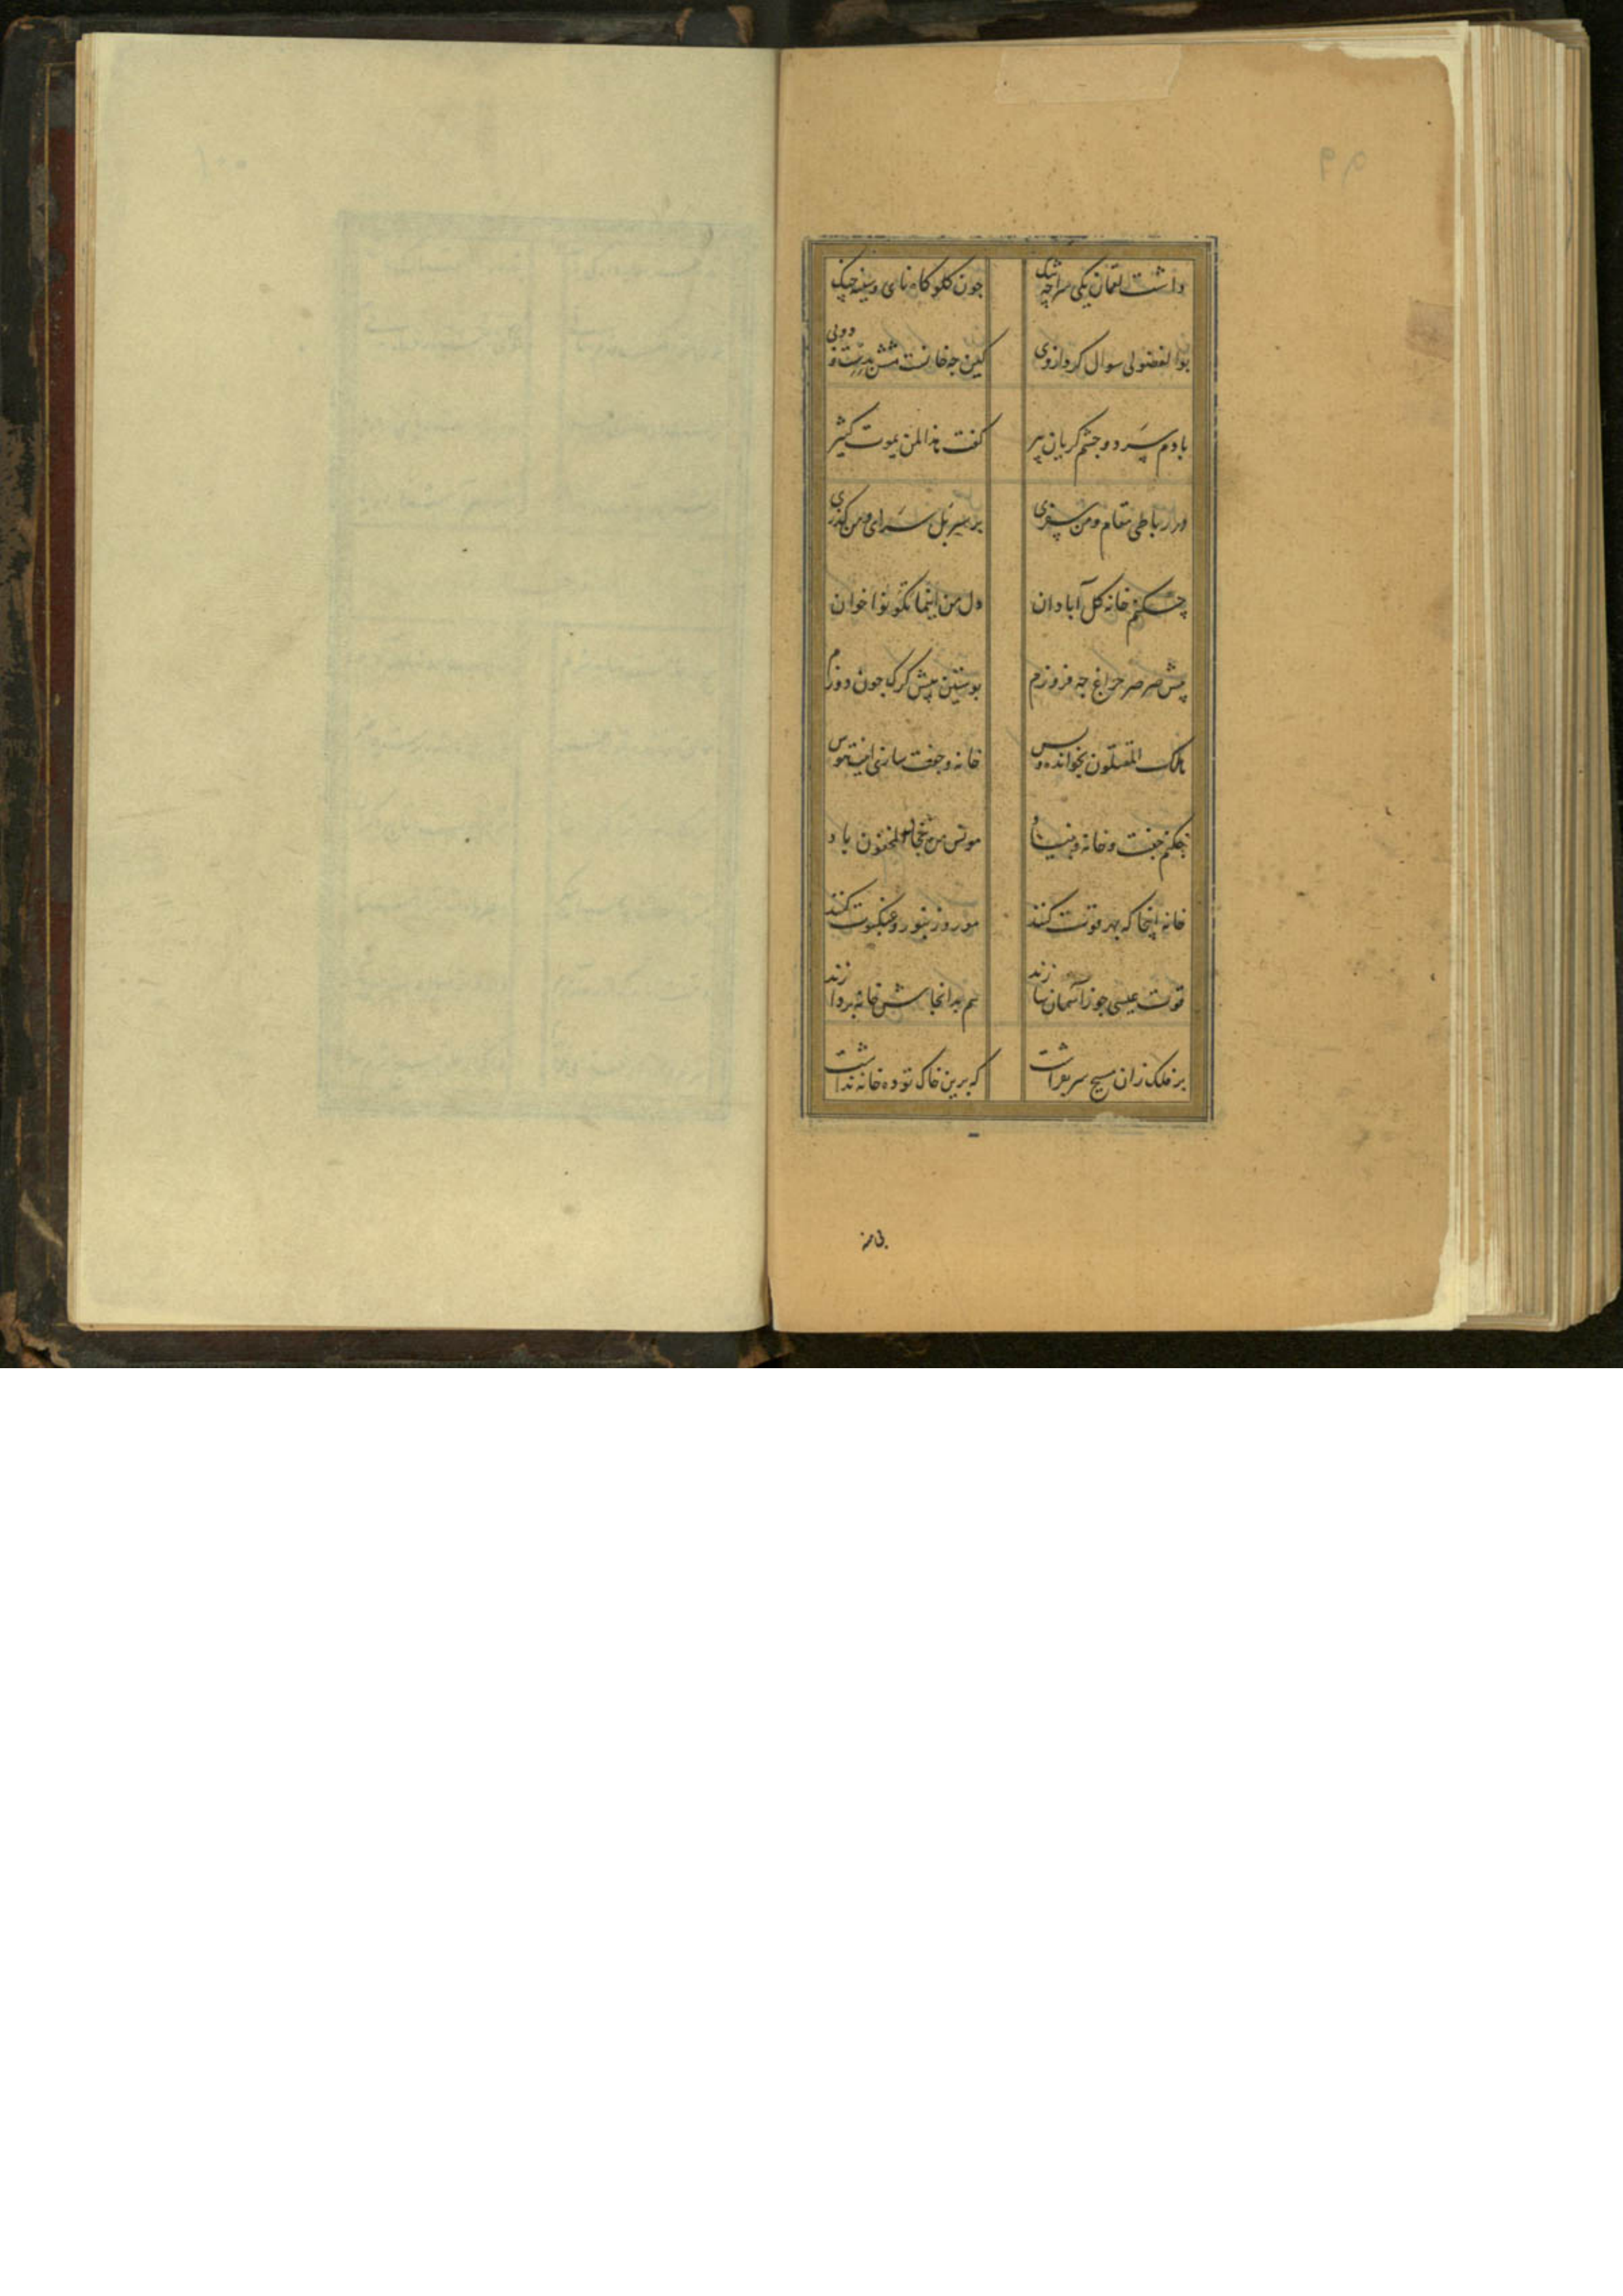 داشت لقمان یکی سراچه تنک جون کلوکاه نای و سینه چنک
بوالفضولی سوال کرد از وی کین جه خانست شش بدست و دو پی
با دم سرد و جشم کریان پیر کفت هذا لمن یموت کثیر
در رباطی مقام و من سفری بر سر پل سرای و من کذری
چکنم خانه کل آبادان دل من اینما تکونوا خوان
پیش صرصر چراغ جه فروزم پوستین پیش کرک جون دوزم
هلک المثقلون بخوانده و بس خانه و جفت سازی اینت هوس
چکنم جفت و خانه و بنیاد مونس من نجا المخفون باد
خانه اینجا که بهر قوت کنند مور و زنبور و عنکبوت کنند
قوت عیسی جو ز آسمان سازند هم بدانجاش خانه پردازند
بر فلک زان مسیح سر بفراشت که برین خاک توده خانه نداشت